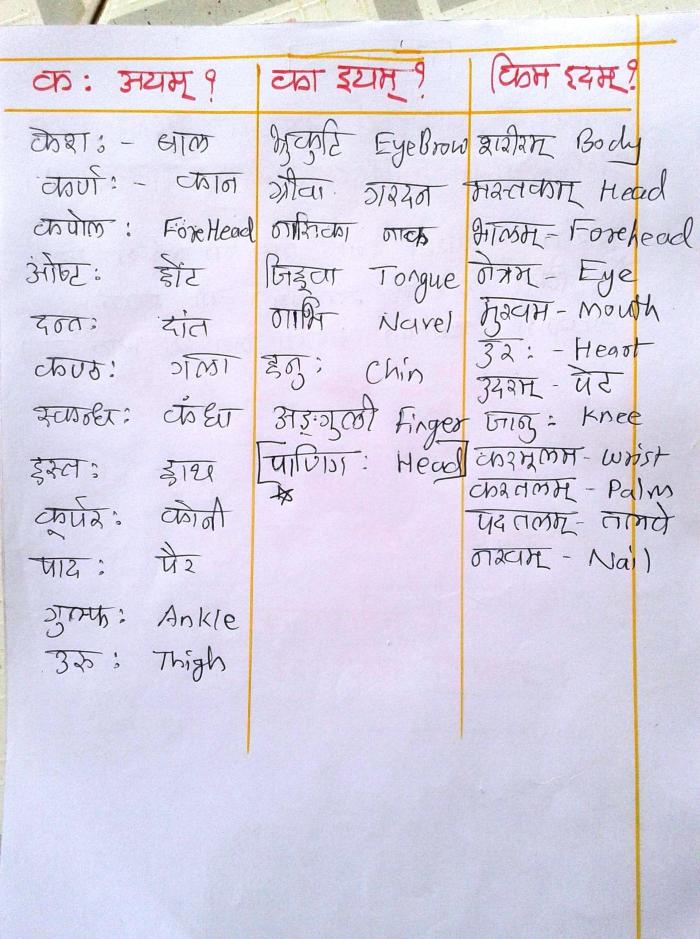 कः अयम् ? का इयम् ? किम इदम् ?
केशः - बाल
कर्णः - कान
कपोल : ForeHead
ओष्टः होंट
दन्तः दांत
कण्ठः गला
स्कन्धः कंधा
हस्तः हाथ
कूर्परः कोनी
पादः पैर
गुल्फः Ankle
उरुः Thigh
भ्रुकुटि EyeBrow
ग्रीवा गरदन
नासिका नाक
जिह्वा Tongue
नाभि Navel
हनुः Chin
अङ्गुली Finger
पाणिगः Head
शरीरम् Body
मस्तकाम् Head
भालम् - Forehead
नेत्रम् - Eye
मुखम - Mouth
उरः - Heart
उदरम् - पेट
जानुः Knee
करमूलम - Wrist
करतलम् - Palm
पदतलम् - तालवे
नखम् - Nail